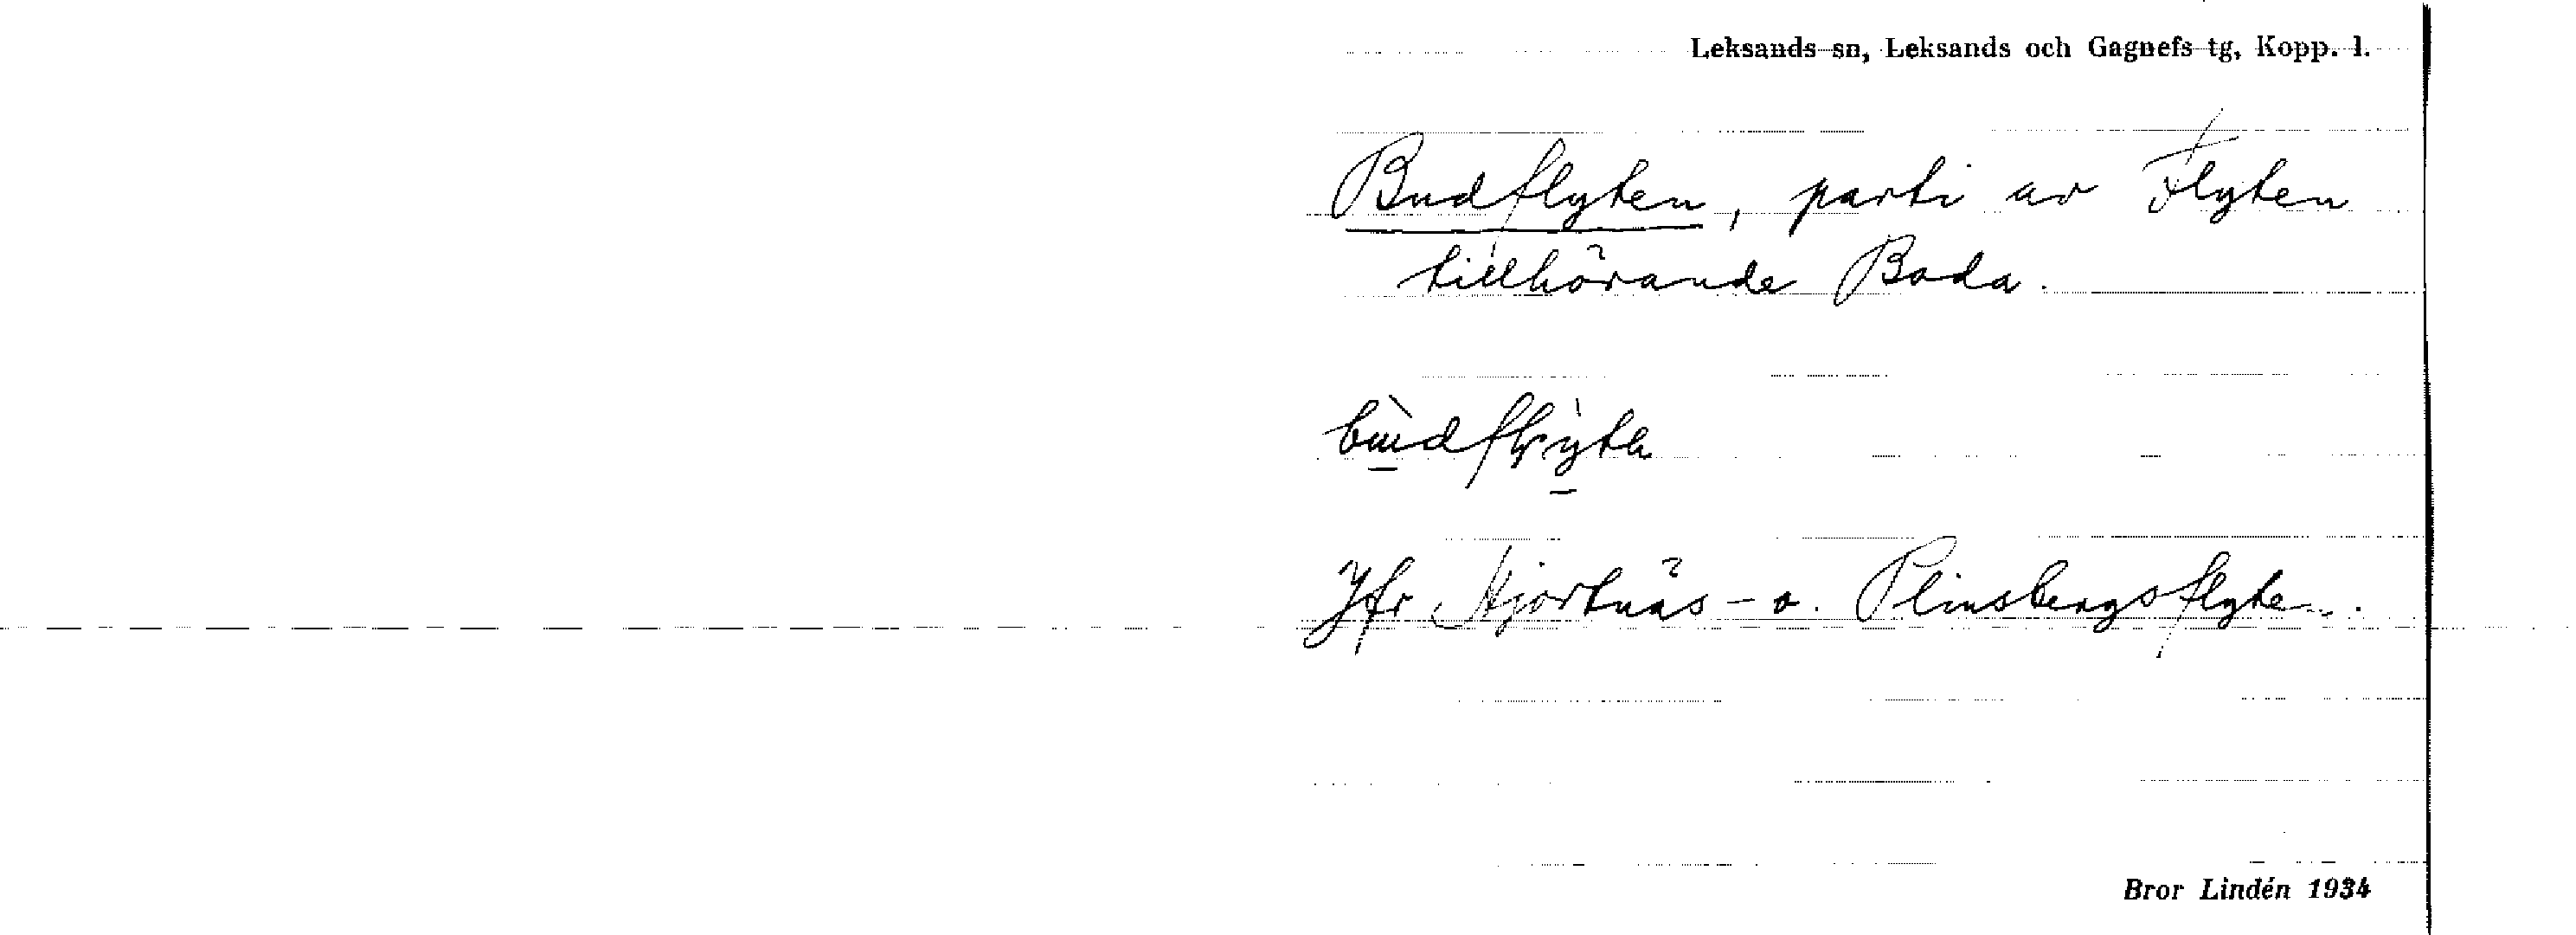 Leksands sn, Leksands och Gagnefs tg, Kopp. l.
Budflyten, parti av Flyten
tillhörande Boda.
Jfr Hjortnäs- o. Plintsbergsflyten.
Bror Lindén 1934